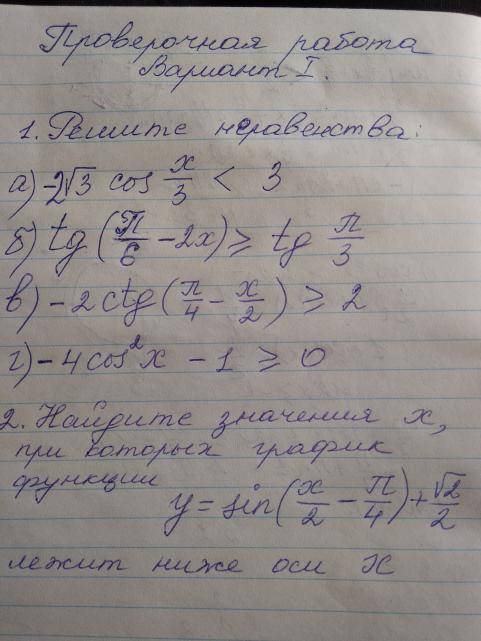 Проверочная работа
Вариант I.
1. Решите неравенства:
а) -2√3 cos x/3 < 3
б) tg(π/6 - 2x) ≥ tg π/3
в) -2ctg(π/4 - x/2) ≥ 2
г) -4cos²x - 1 ≥ 0
2. Найдите значения x,
при которых график
функции
y = sin(x/2 - π/4) + √2/2
лежит ниже оси x